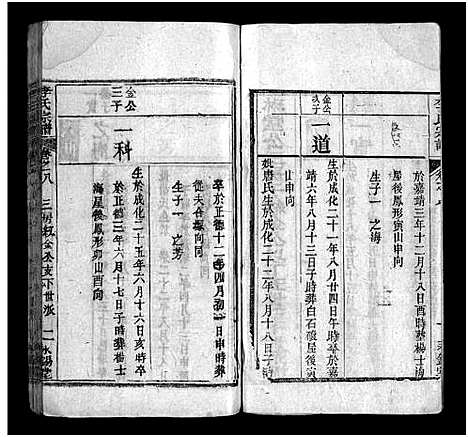 李氏宗譜
金公
次子
一道
生於成化二十一年八月廿四日午時卒於嘉
靖六年八月十三日子時葬白石磜屋後寅
山申向
妣唐氏生於成化二十二年八月十八日子時
於嘉靖三年十二月十八日酉時葬楊士海
星後鳳形寅山申向
生子一 之海
卒於正德十二年四月初二日申時葬
從夫合墳向同
生子一 之芳
金公
三子
一科
生於成化二十五年六月十六日亥時卒
於正德三年六月十七日子時葬楊士
海星後鳳形卯山酉向
李氏宗譜
卷之八 三房叔金公亥下世派 二